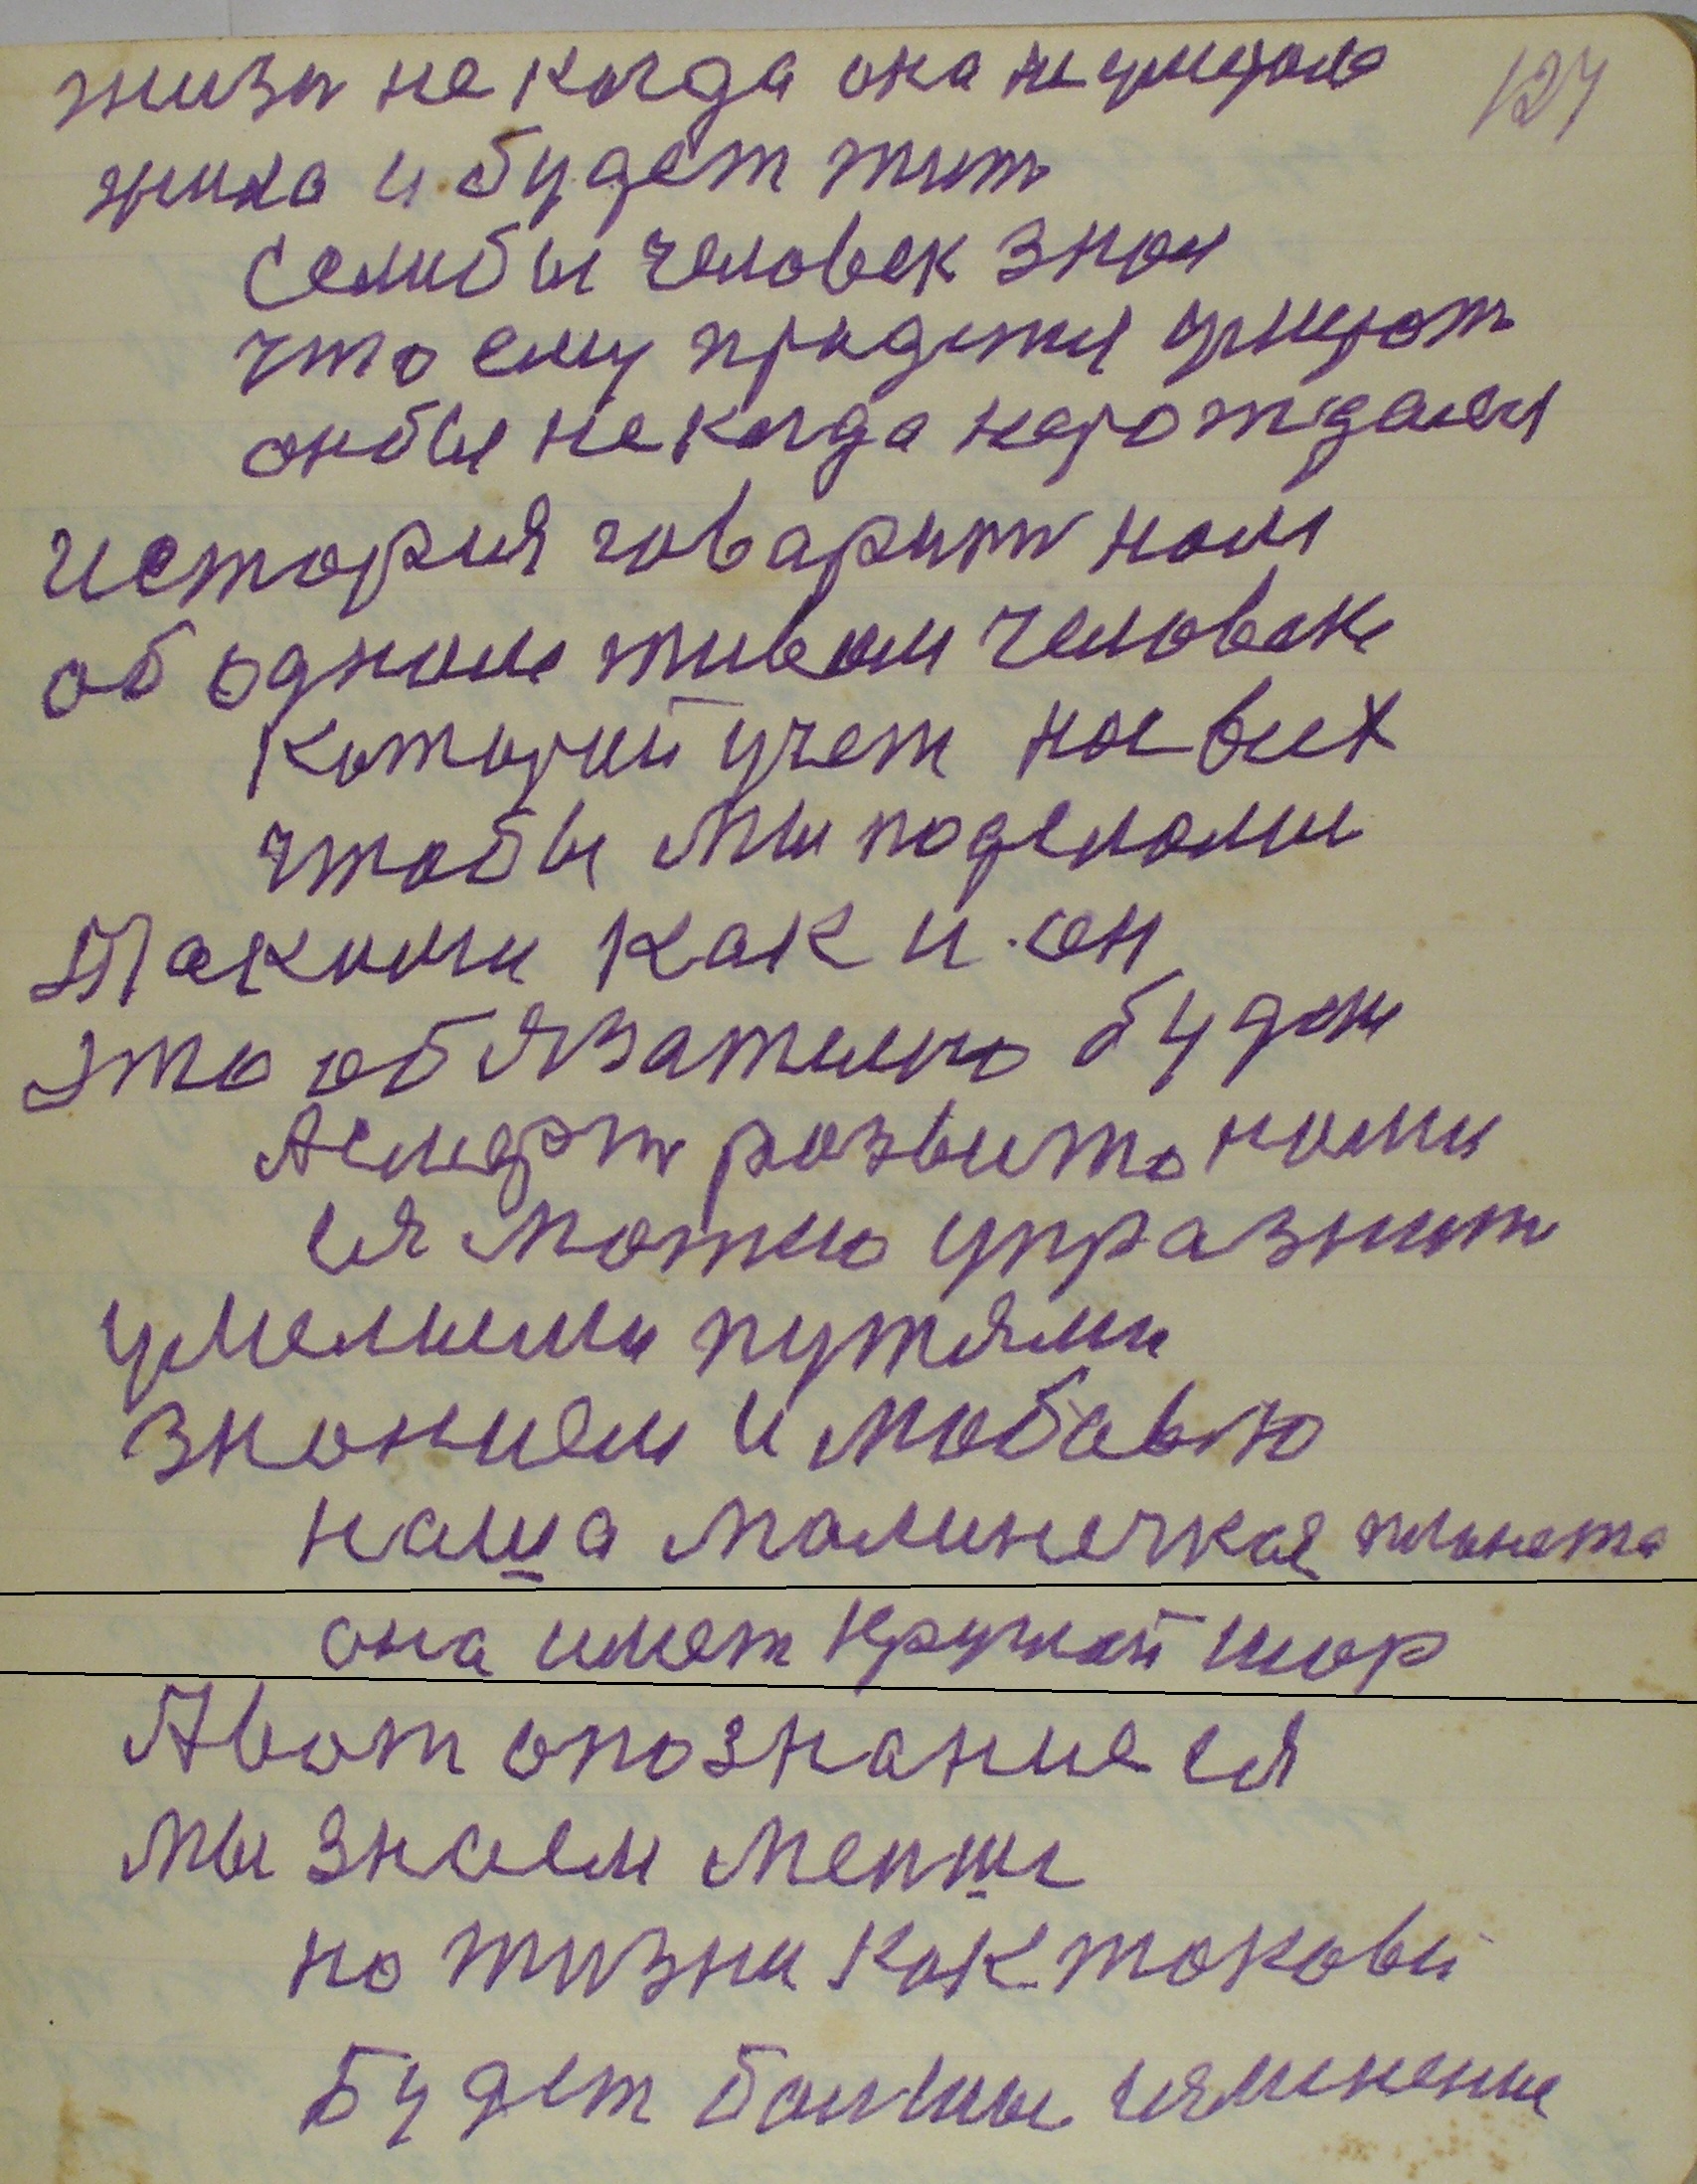 жизн не когда она не умерала
124
жила и будет жить
Селибы человек знал
что ему придетця умерать
онбы не когда нерождался
история говарить нам
об одном живом человеке
который учет нас всех
чтобы мы поделалис
Такими как и он
это обязательно будет
Асмерть розвито нами
ея можно упразнить
умелыеми путями
знанием и любовью
наша малинечкая планета
она имеет круглой шар
Авот опознание ея
мы знаем меньше
но жизни как токовы
будет большые